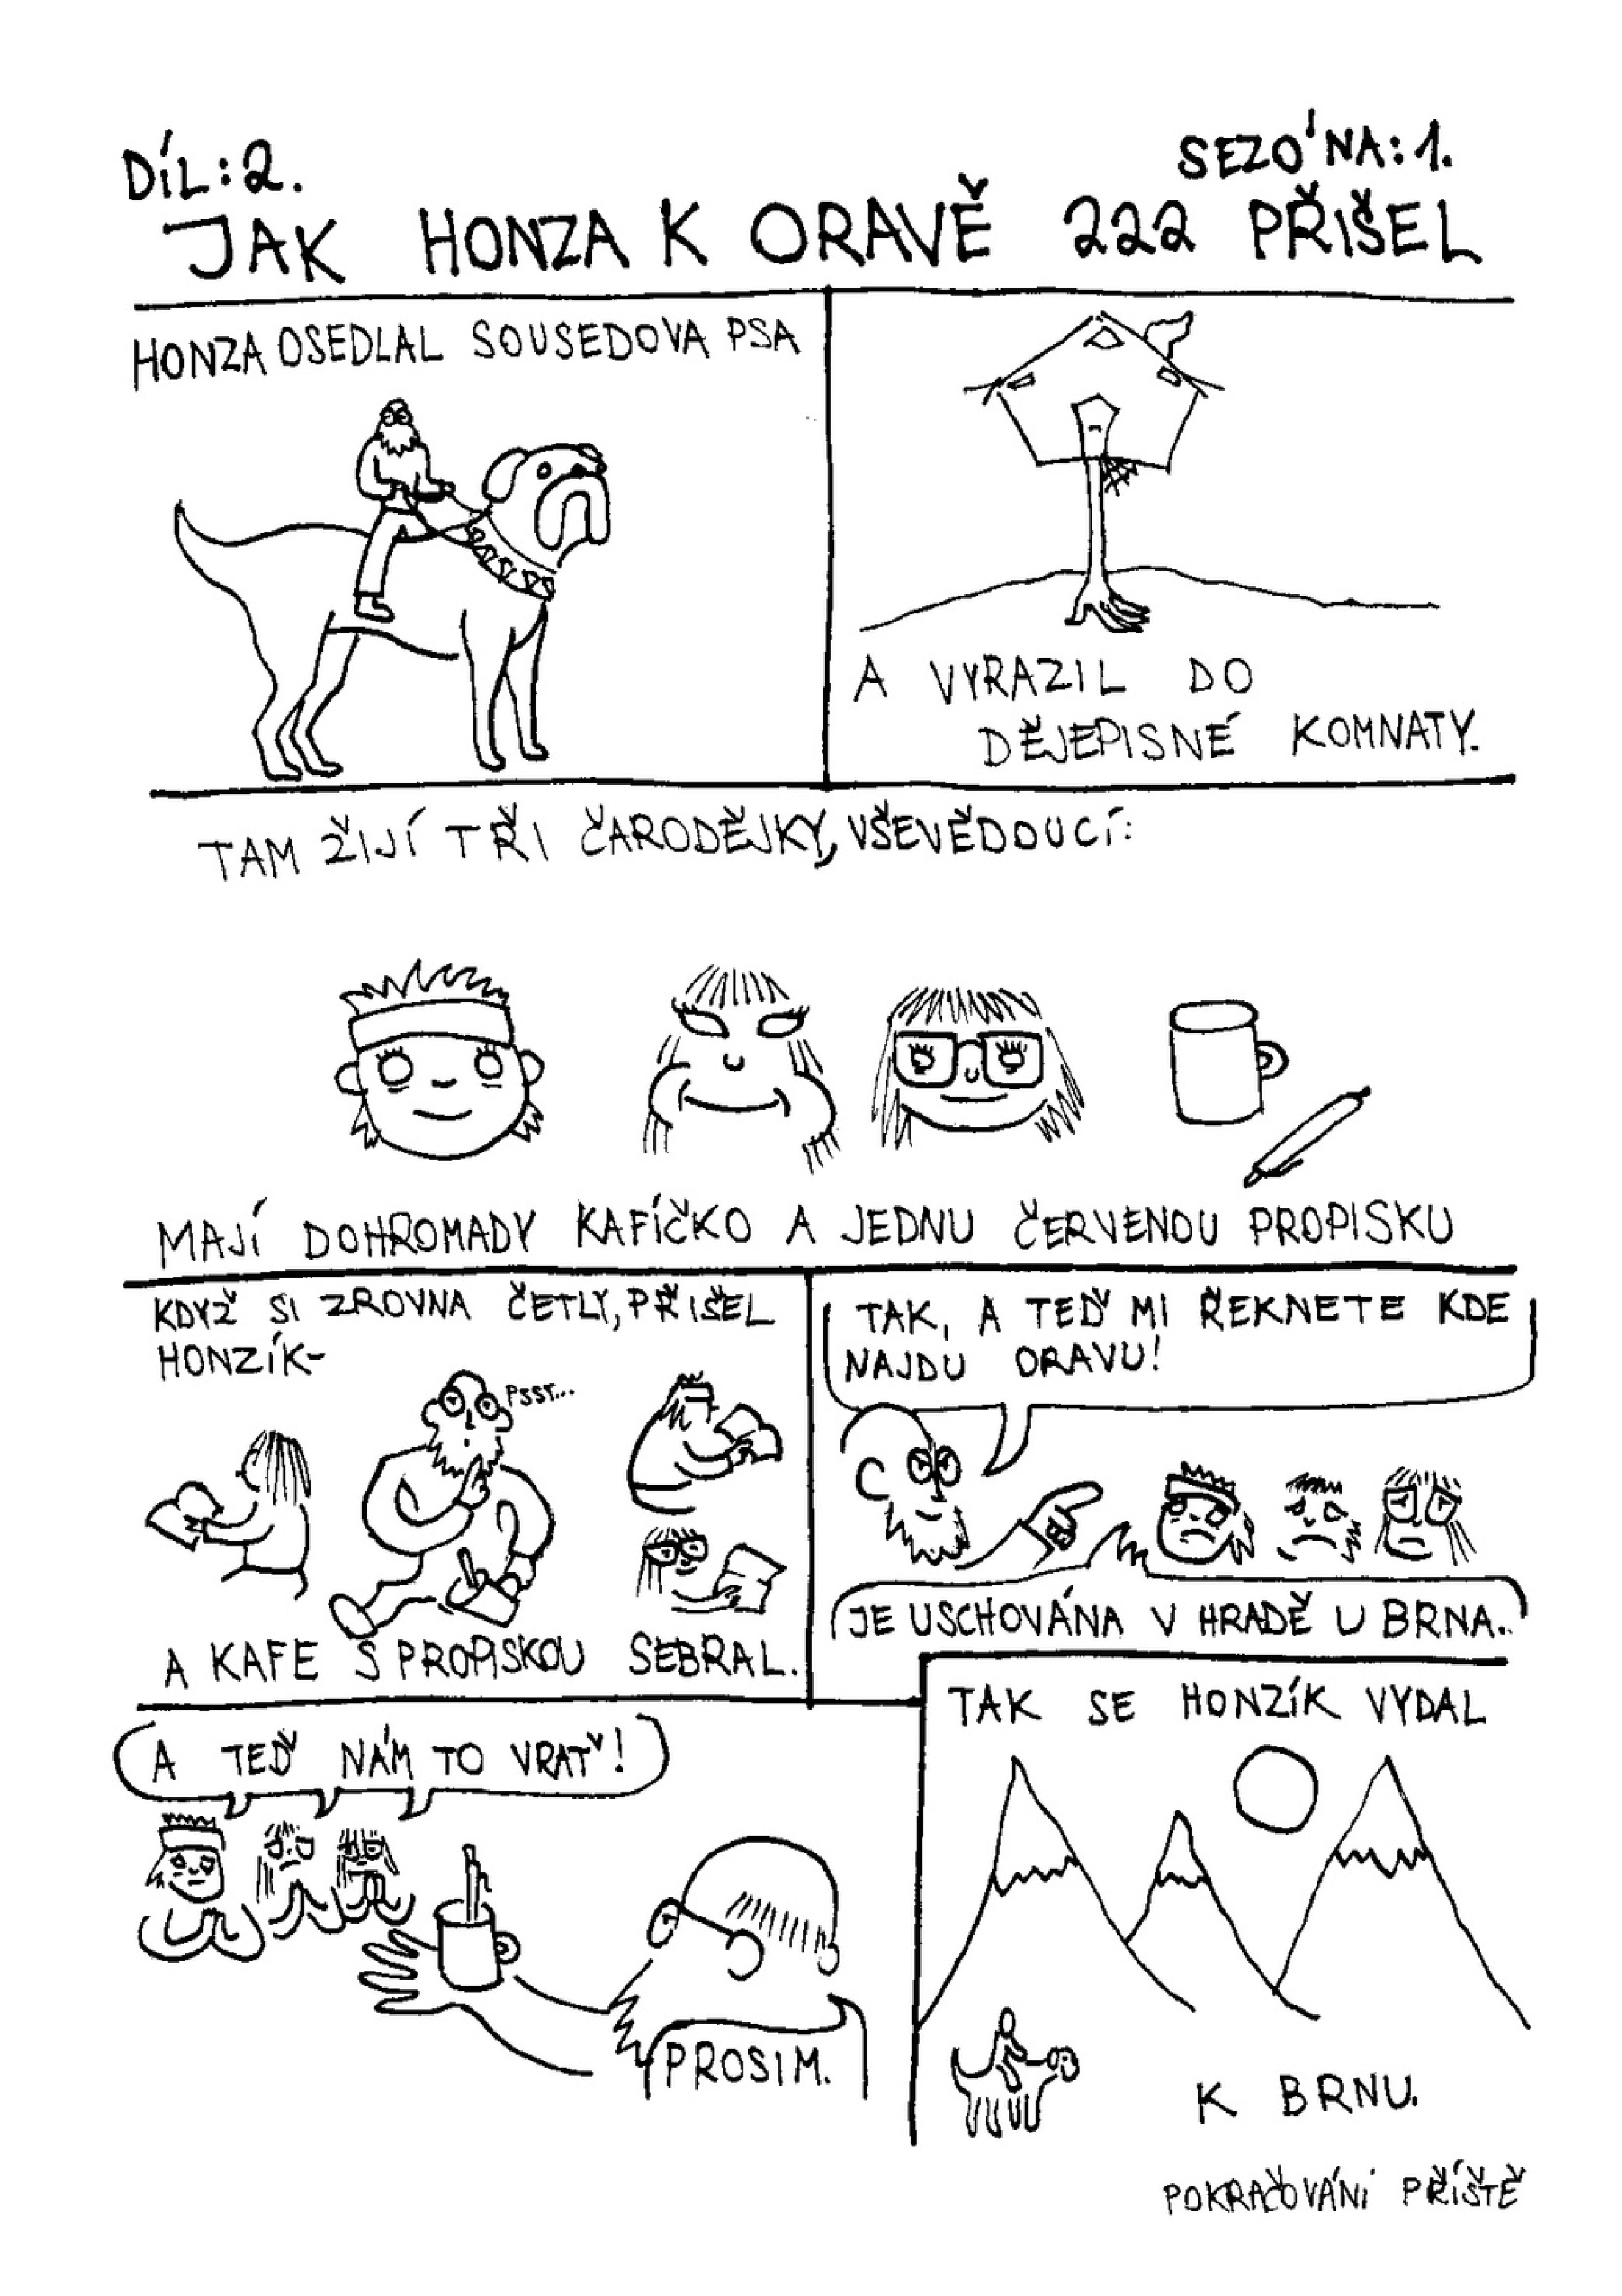 DÍL: 2.
SEZÓNA: 1.
JAK HONZA K ORAVĚ 222 PŘIŠEL
HONZA OSEDLAL SOUSEDOVA PSA
A VYRAZIL DO
DĚJEPISNÉ KOMNATY.
TAM ŽIJÍ TŘI ČARODĚJKY, VŠEVĚDOUCÍ:
MAJÍ DOHROMADY KAFÍČKO A JEDNU ČERVENOU PROPISKU
KDYŽ SI ZROVNA ČETLY, PŘIŠEL
HONZÍK-
PSST...
A KAFE S PROPISKOU SEBRAL.
TAK, A TEĎ MI ŘEKNETE KDE
NAJDU ORAVU!
JE USCHOVÁNA V HRADĚ U BRNA.
A TEĎ NÁM TO VRAŤ!
PROSIM.
TAK SE HONZÍK VYDAL
K BRNU.
POKRAČOVÁNÍ PŘÍŠTĚ